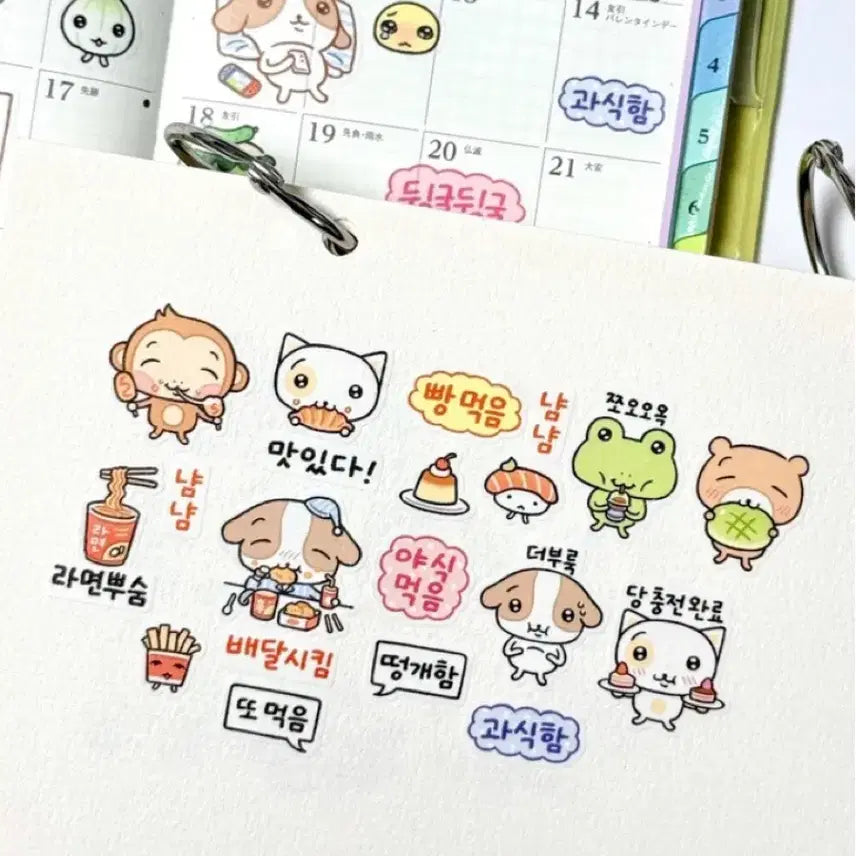 14 友引
バレンタインデー
4
과식함
17 先勝
5
18 友引
19 先負・雨水
20 仏滅
21 大安
6
뒹굴뒹굴
빵 먹음
냠
냠
쪼오오옥
맛있다!
냠
냠
라면
라면뿌숨
야식
먹음
더부룩
당충전완료
배달시킴
떵개함
또 먹음
과식함